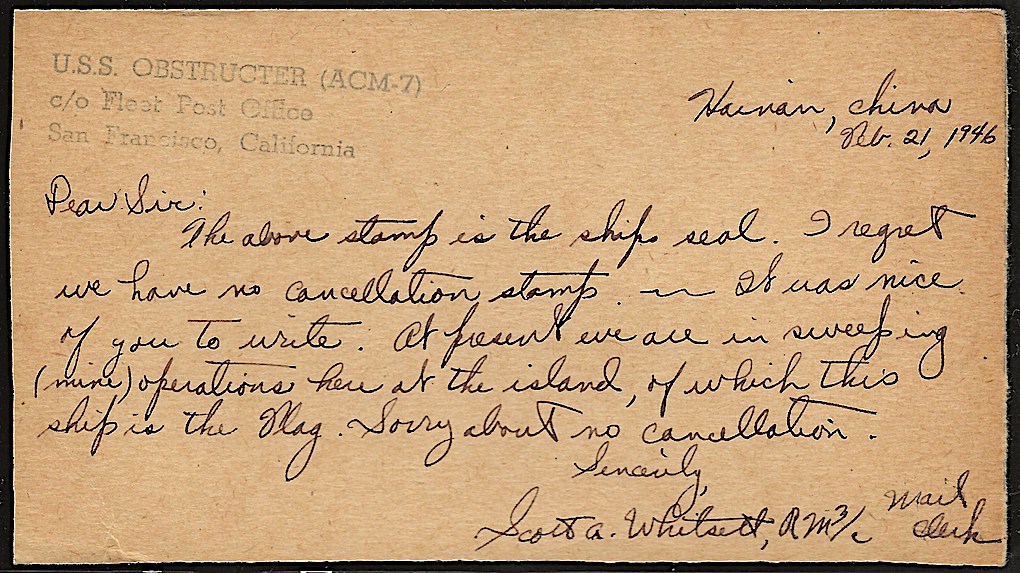 U.S.S. OBSTRUCTER (ACM-7)
c/o Fleet Post Office
San Francisco, California
Hainan, China
Feb. 21, 1946
Dear Sir:
The above stamp is the ships seal. I regret
we have no cancellation stamp. — It was nice
of you to write. At present we are in sweeping
(mine) operations here at the island, of which this
ship is the Flag. Sorry about no cancellation.
Sincerely,
Scott A. Whitsett, RM3/c Mail
Clerk